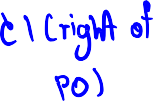 c1 (right of
PO)